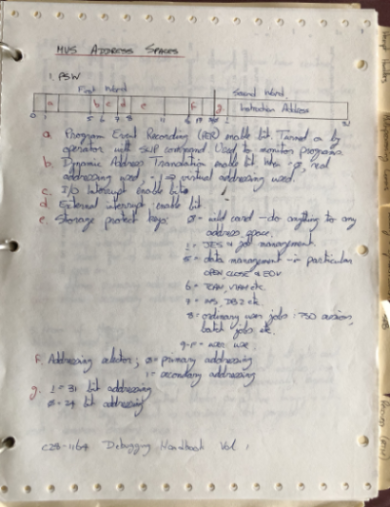 MVS ADDRESS SPACES
1. PSW
First Word Second Word
a b c d e f g Instruction Address
0 1 5 6 7 8
a. Program Event Recording (PER) enable bit. Turned on by
operator with SLIP command. Used to monitor programs.
b. Dynamic Address Translation enable bit. When = 0, real
addressing used, = 1 => virtual addressing used
c. I/O Interrupt enable bit
d. External interrupt enable bit
e. Storage protect keys: 0 = wild card - do anything to any
address space.
1 = JES & job management
5 = data management - in particular
OPEN CLOSE & EOV
6 = TCAM, VTAM etc.
7 = IMS, DB2 etc.
8 = ordinary user jobs: TSO sessions,
batch jobs, etc.
9-F =
f. Addressing 0 = primary addressing
1 = secondary addressing
g. 1 = 31 bit addressing
0 = 24 bit addressing
C28-1164 Debugging Handbook Vol 1